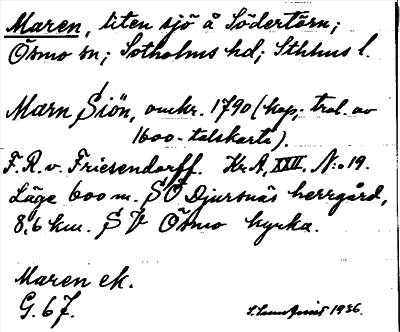 Maren, liten sjö å Södertörn;
Ösmo sn; Sotholms hd; Sthlms l.
Marn Siön, omkr. 1790 (kop. trol. av
1600-talskarta).
F.R. v. Friesendorff. Kr.A, XXII. N:o 19.
Läge 600 m. SO Djursnäs herrgård,
8,6 km. SV Ösmo kyrka.
Maren ek.
G. 67.
1936.